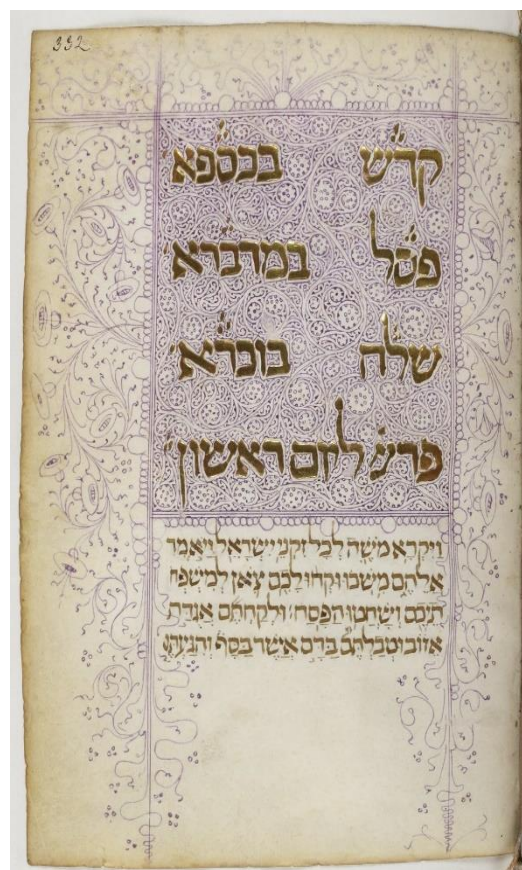 332
קדש בכספא
פסל במדברא
שלח בוכרא
פרש ליום ראשון
ויקרא משה לכל זקני ישראל ויאמר
אלהם משכו וקחו לכם צאן למשפח
תיכם ושחטו הפסח׃ ולקחתם אגדת
אזוב וטבלתם בדם אשר בסף והגעתם